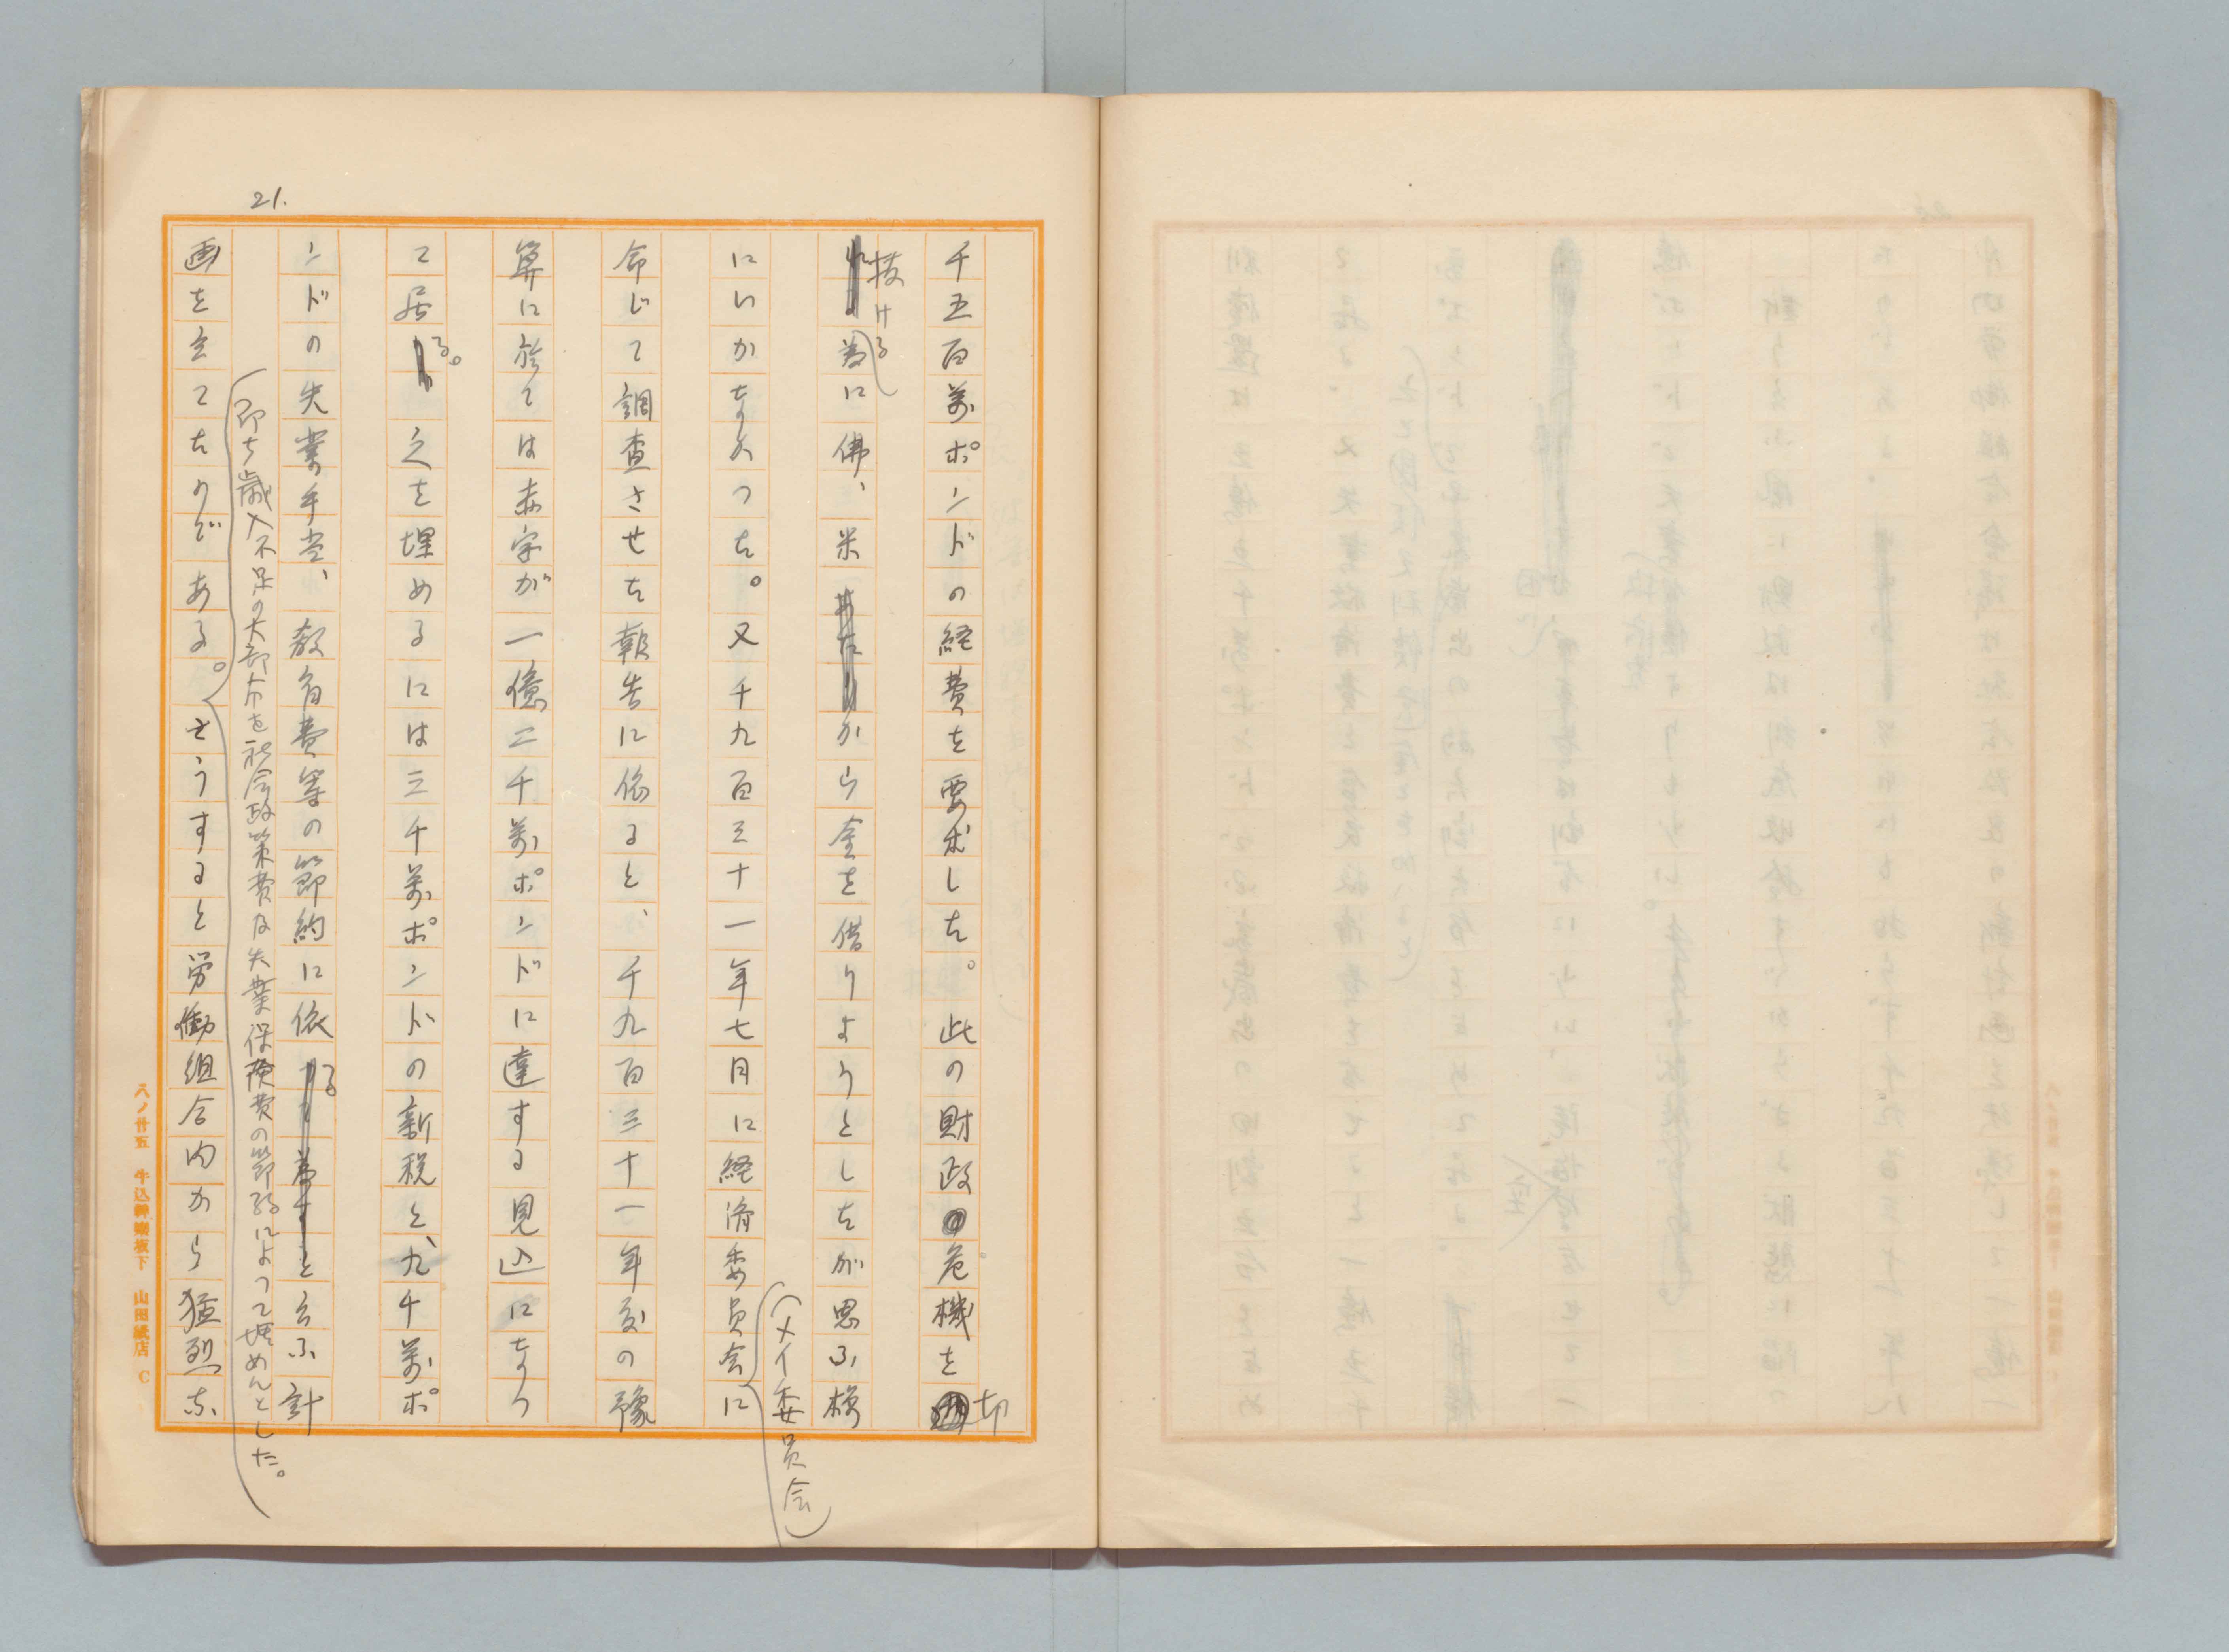 21.
千五百萬ポンドの経費を要求した。此の財政危機を切
抜ける為に佛、米から金を借りようとしたが思ふ様
にいかなかつた。又千九百三十一年七月に経済委員会に
(メイ委員会)
命じて調査させた報告に依ると、千九百三十一年度の豫
算に於ては赤字が一億二千萬ポンドに達する見込になつ
て居る。之を埋めるには三千萬ポンドの新税と、九千萬ポ
ンドの失業手当、教育費等の節約に依ると云ふ計
即ち歳入不足の大部分を社会政策費及失業保険費の節約によつて埋めんとした。
画を立てたのである。さうすると労働組合内から猛烈な
八ノ廿五 牛込神樂坂下 山田紙店 C